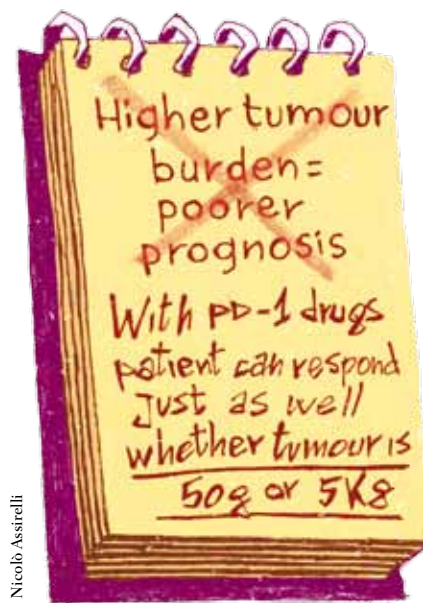 Higher tumour
burden=
poorer
prognosis
With PD-1 drugs
patient can respond
just as well
whether tumour is
50g or 5Kg
Nicolò Assirelli